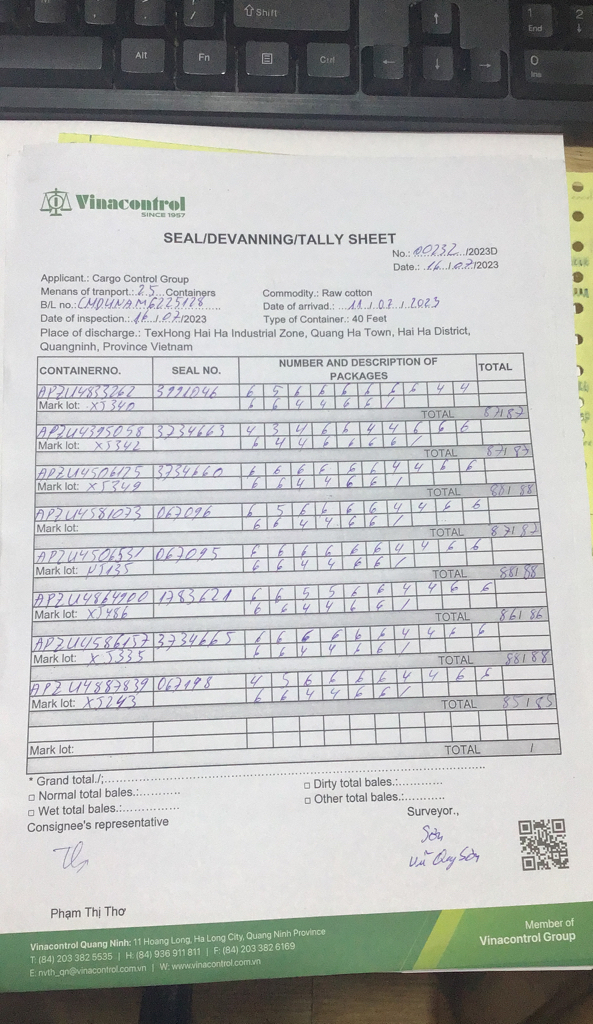 Shift
Alt
Fn
Ctrl
1
End
2
0
Ins
Vinacontrol
SINCE 1957
SEAL/DEVANNING/TALLY SHEET
No.: 00232 /2023D
Date.: 16 / 07 /2023
Applicant.: Cargo Control Group
Menans of tranport.: 25 Containers
Commodity.: Raw cotton
B/L no.: CMDUNAM6225128
Date of arrivad.: 11 / 07 / 2023
Date of inspection.: 16 / 07 /2023
Type of Container.: 40 Feet
Place of discharge.: TexHong Hai Ha Industrial Zone, Quang Ha Town, Hai Ha District,
Quangninh, Province Vietnam
CONTAINERNO. SEAL NO. NUMBER AND DESCRIPTION OF PACKAGES TOTAL
APZU4833262 6 5 6 6 6 6 6 6 4 4
Mark lot: XJ340 6 6 4 4 6 6 /
TOTAL 87 87
APZU4395058 3734663 4 3 4 6 6 4 4 6 6 6
Mark lot: XJ342 6 4 4 6 6 6 6 /
TOTAL
APZU4506175 3734660 6 6 6 6 6 6 4 4 6 6
Mark lot: XJ349 6 6 4 4 6 6 /
TOTAL 88
APZU4581073 067096 6 5 6 6 6 6 4 4 6 6
Mark lot: 6 6 4 4 6 6 /
TOTAL 87 87
APZU4506531 067095 6 6 6 6 6 6 4 4 6 6
Mark lot: 6 6 4 4 6 6 /
TOTAL 88 88
APZU4864900 1783621 6 6 5 5 6 6 4 4 6 6
Mark lot: XJ486 6 6 4 4 6 6 /
TOTAL 86 86
APZU4586157 3734665 6 6 6 6 6 6 4 4 6 6
Mark lot: XJ335 6 6 4 4 6 6 /
TOTAL 88 88
APZU4887839 067198 4 5 6 6 6 6 4 4 6 6
Mark lot: XJ243 6 6 4 4 6 6 /
TOTAL 85 85
Mark lot:
TOTAL /
* Grand total./;
□ Normal total bales.:
□ Dirty total bales.:
□ Wet total bales.:
□ Other total bales.:
Consignee's representative
Surveyor.,
Sơn
Vũ Quy Sơn
Phạm Thị Thơ
Vinacontrol Quang Ninh: 11 Hoang Long, Ha Long City, Quang Ninh Province
T: (84) 203 382 5535 | H: (84) 936 911 811 | F: (84) 203 382 6169
E: nvth_qn@vinacontrol.com.vn | W: www.vinacontrol.com.vn
Member of
Vinacontrol Group